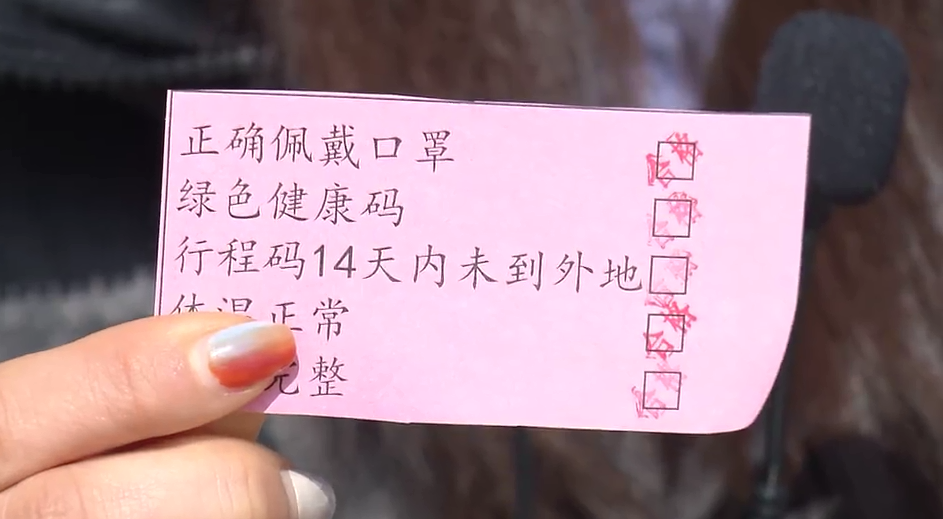 正确佩戴口罩
绿色健康码
行程码14天内未到外地
体温正常
完整